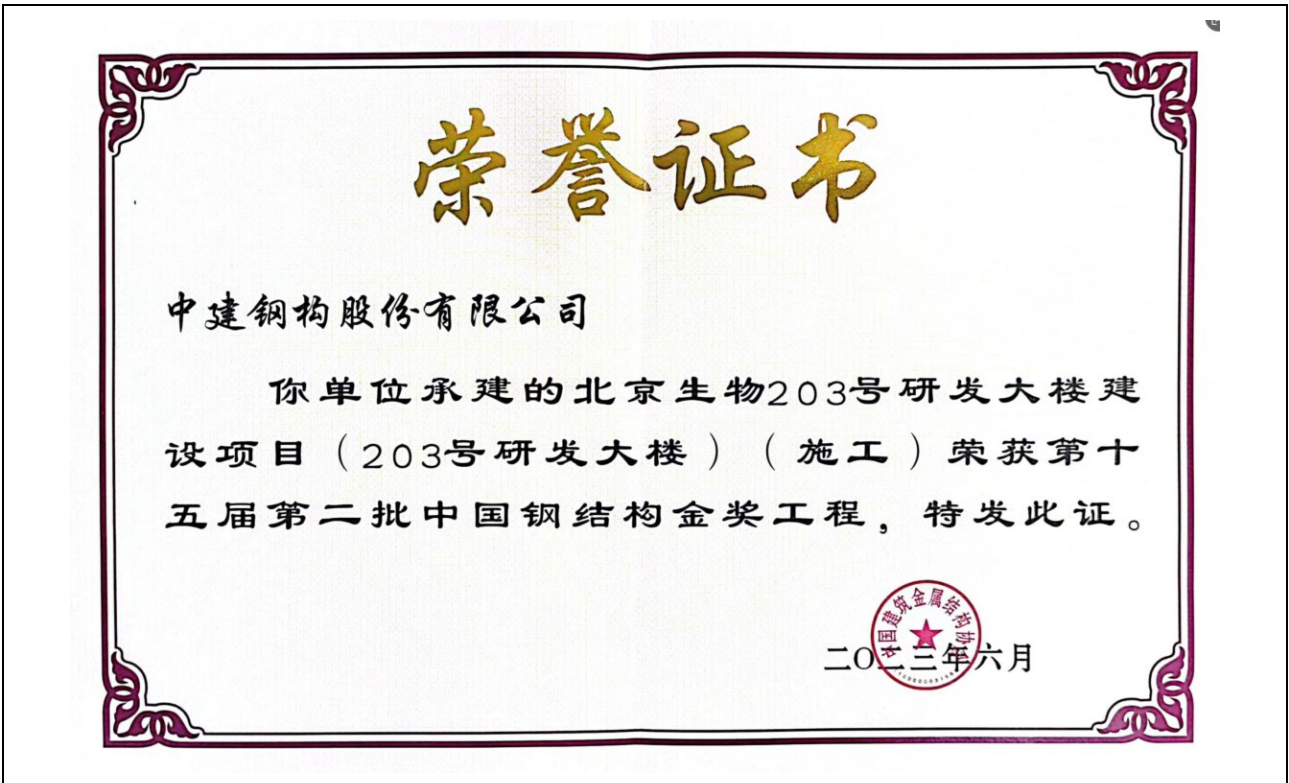 荣誉证书
中建钢构股份有限公司
你单位承建的北京生物203号研发大楼建
设项目（203号研发大楼）（施工）荣获第十
五届第二批中国钢结构金奖工程，特发此证。
中国建筑金属结构协会
二〇二三年六月